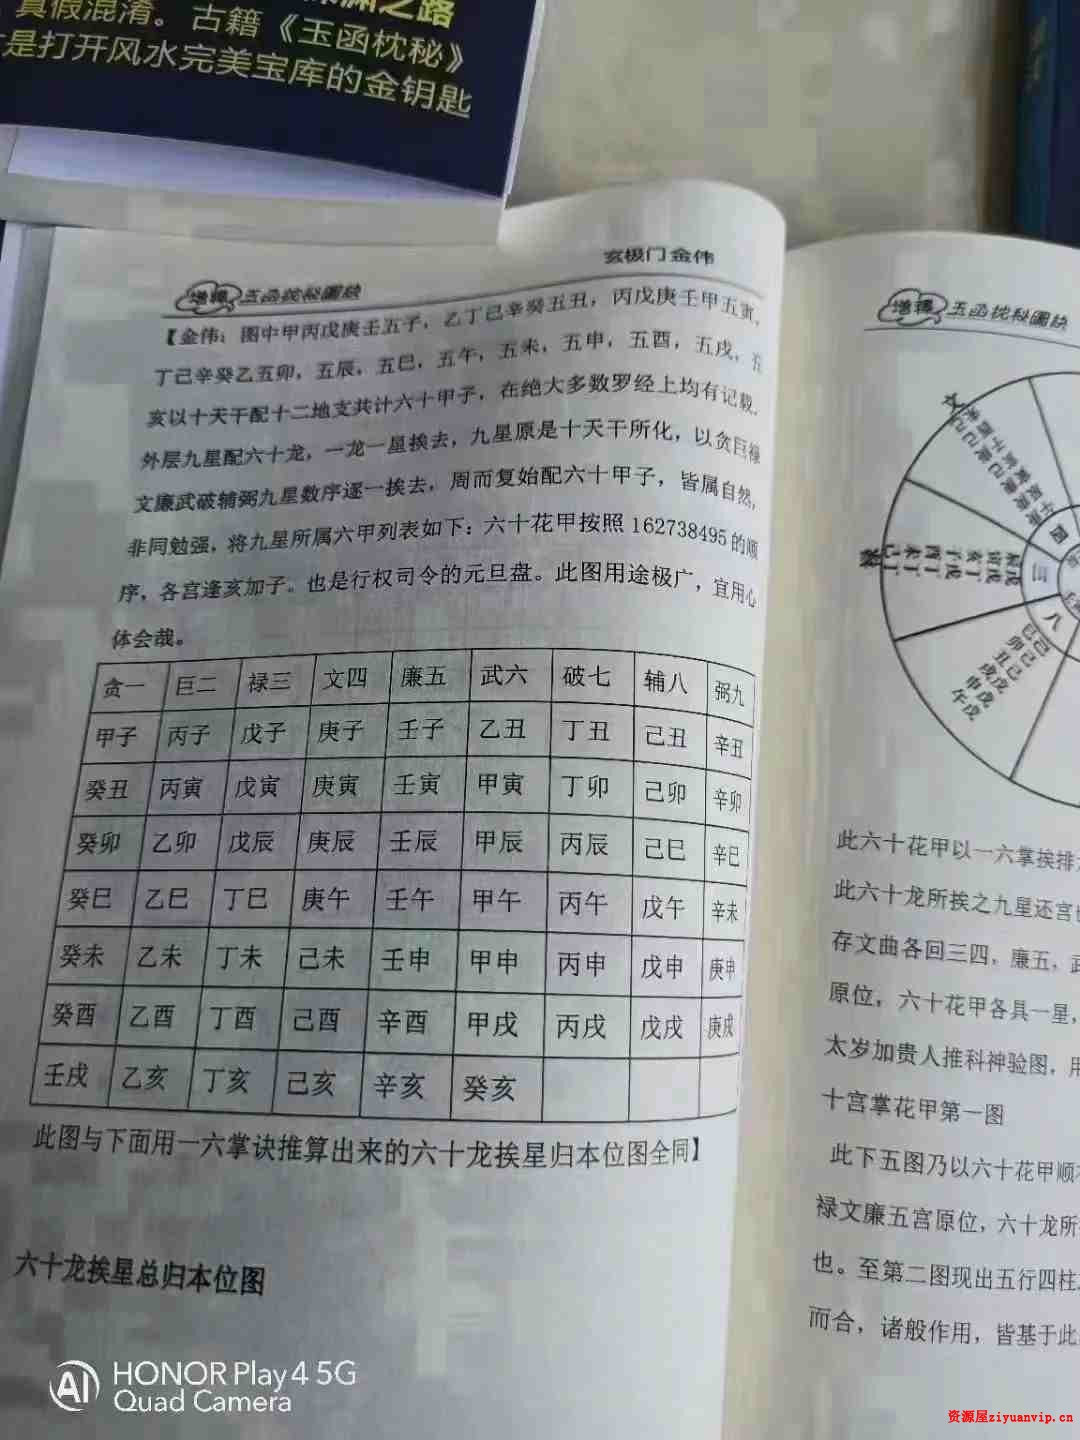 真假混淆。古籍《玉函枕秘》
是打开风水完美宝库的金钥匙
玄极门金伟
增释 玉函枕秘图诀
【金伟：图中甲丙戊庚壬五子，乙丁己辛癸五丑，丙戊庚壬甲五寅，
丁己辛癸乙五卯，五辰，五巳，五午，五未，五申，五酉，五戌，五
亥以十天干配十二地支共计六十甲子，在绝大多数罗经上均有记载，
外层九星配六十龙，一龙一星挨去，九星原是十天干所化，以贪巨禄
文廉武破辅弼九星数序逐一挨去，周而复始配六十甲子，皆属自然，
非同勉强，将九星所属六甲列表如下：六十花甲按照162738495的顺
序，各宫逢亥加子。也是行权司令的元旦盘。此图用途极广，宜用心
体会哉。
贪一 巨二 禄三 文四 廉五 武六 破七 辅八 弼九
甲子 丙子 戊子 庚子 壬子 乙丑 丁丑 己丑 辛丑
癸丑 丙寅 戊寅 庚寅 壬寅 甲寅 丁卯 己卯 辛卯
癸卯 乙卯 戊辰 庚辰 壬辰 甲辰 丙辰 己巳 辛巳
癸巳 乙巳 丁巳 庚午 壬午 甲午 丙午 戊午 辛未
癸未 乙未 丁未 己未 壬申 甲申 丙申 戊申 庚申
癸酉 乙酉 丁酉 己酉 辛酉 甲戌 丙戌 戊戌 庚戌
壬戌 乙亥 丁亥 己亥 辛亥 癸亥
此图与下面用一六掌诀推算出来的六十龙挨星归本位图全同】
六十龙挨星总归本位图
增释 玉函枕秘图诀
三
八
此六十花甲以一六掌挨排
此六十龙所挨之九星还宫
存文曲各回三四，廉五，武
原位，六十花甲各具一星，
太岁加贵人推科神验图，用
十宫掌花甲第一图
此下五图乃以六十花甲顺
禄文廉五宫原位，六十龙所
也。至第二图现出五行四柱
而合，诸般作用，皆基于此
HONOR Play4 5G
Quad Camera
资源屋ziyuanvip.cn